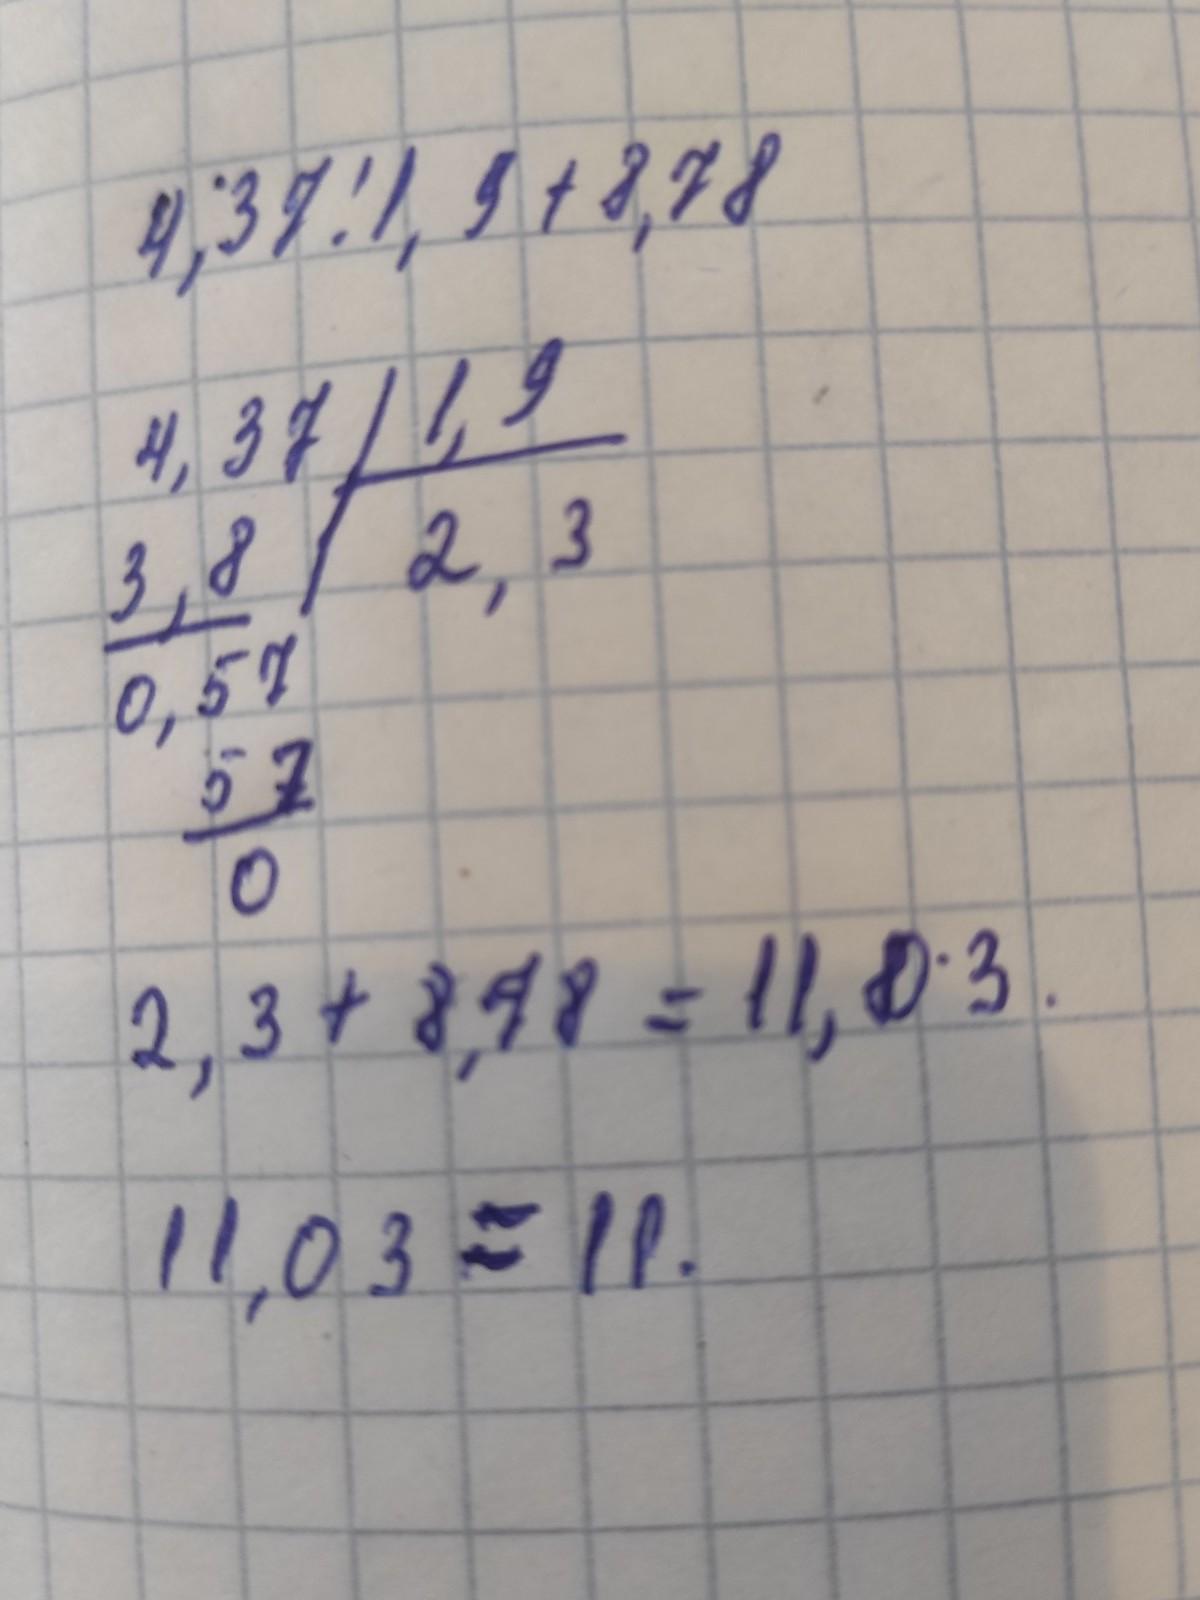 4,37:1,9+8,78
4,37 1,9
3,8 2,3
0,57
57
0
2,3+8,78=11,03.
11,03≈11.